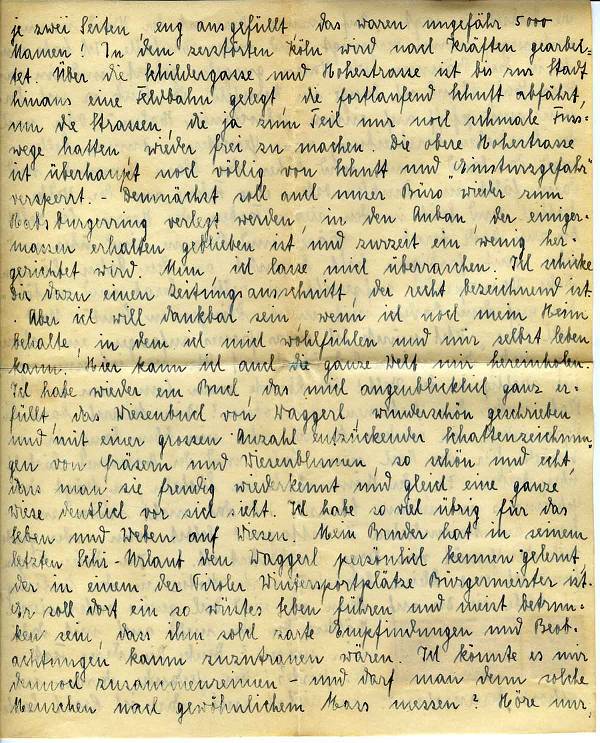 je zwei Seiten eng ausgefüllt, das waren ungefähr 5000
Namen! In dem zerstörten Köln wird nach Kräften gearbei-
tet. Über die Schildergasse und Hohestrasse ist bis zur Stadt
hinaus eine Feldbahn gelegt die fortlaufend Schutt abfährt,
um die Strassen, die ja zum Teil nur noch schmale Fuss-
wege hatten, wieder frei zu machen. Die obere Hohestrasse
ist überhaupt noch völlig von Schutt und "Einsturzgefahr"
versperrt. - Demnächst soll auch unser Büro wieder zum
Habsburgerring verlegt werden, in den Anbau, der einiger-
massen erhalten geblieben ist und zurzeit ein wenig her-
gerichtet wird. Nun, ich lasse mich überraschen. Ich schicke
Dir dazu einen Zeitungsausschnitt, der recht bezeichnend ist.
. Aber ich will dankbar sein, wenn ich noch mein Heim
behalte, in dem ich mich wohlfühlen und mir selbst leben
kann. Hier kann ich auch die ganze Welt mir hereinholen.
Ich habe wieder ein Buch, das mich augenblicklich ganz er-
füllt, das Wiesenbuch von Waggerl wunderschön geschrieben
und mit einer grossen Anzahl entzückender Schattenzeichnun-
gen von Gräsern und Wiesenblumen, so schön und echt,
dass man sie freudig wiederkennt und gleich eine ganze
Wiese deutlich vor sich sieht. Ich habe so viel übrig für das
Leben und Weben auf Wiesen! Mein Bruder hat in seinem
letzten Schi-Urlaub den Waggerl persönlich kennen gelernt,
der in einem der Tiroler Wintersportplätze Bürgermeister ist.
Er soll dort ein so wüstes Leben führen und meist betrun-
ken sein, dass ihm solch zarte Empfindungen und Beob-
achtungen kaum zuzutrauen wären. Ich könnte es mir
dennoch zusammenreimen - und darf man denn solche
Menschen nach gewöhnlichem Mass messen? Höre nur,